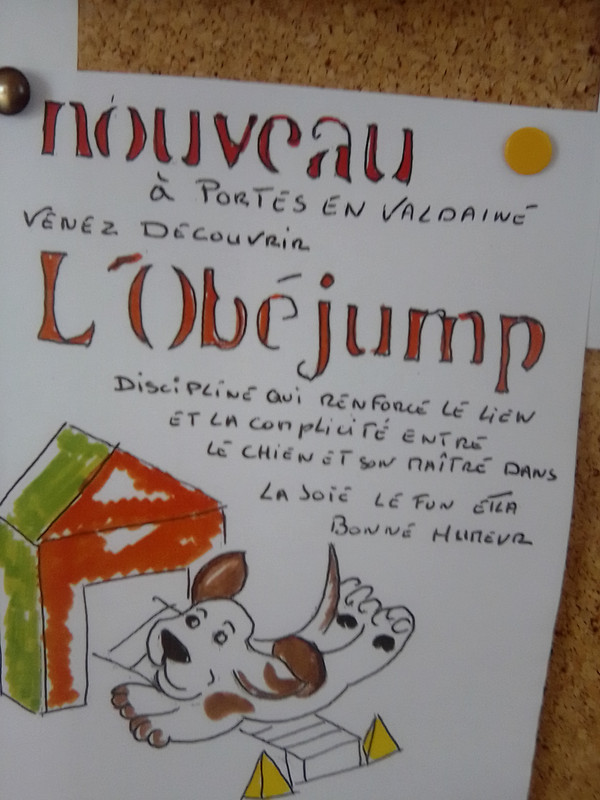 nouveau
à PORTES EN VALDAINE
VENEZ DÉCOUVRIR
L'Obéjump
DISCIPLINE QUI RENFORCE LE LIEN
ET LA COMPLICITÉ ENTRE
LE CHIEN ET SON MAÎTRE DANS
LA JOIE LE FUN ET LA
BONNE HUMEUR